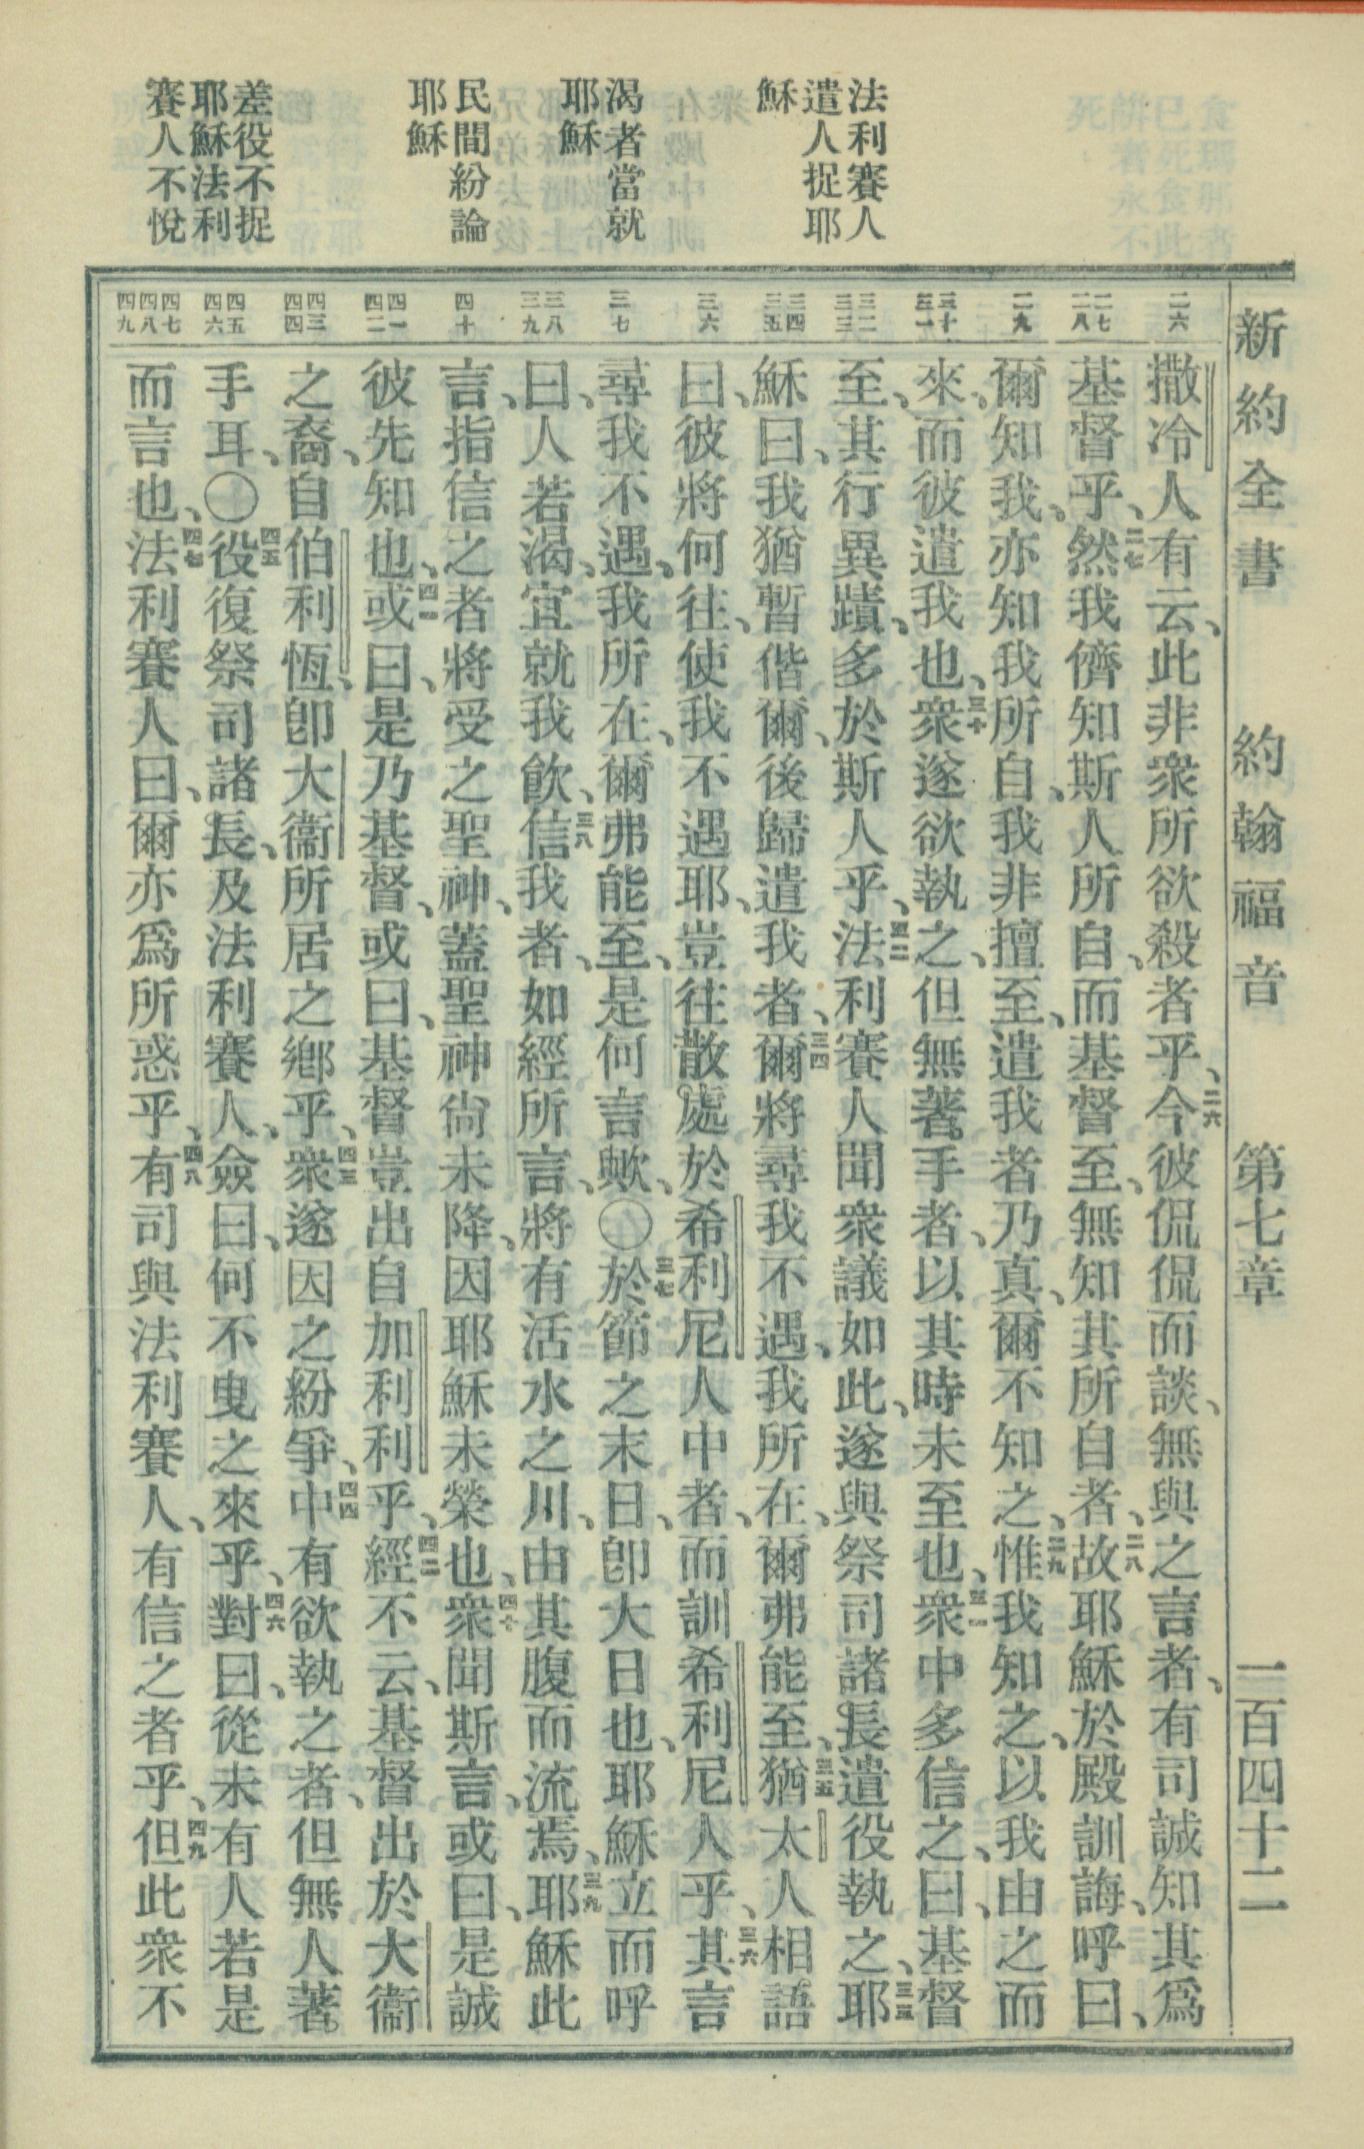 新約全書　約翰福音　第七章　一百四十二
法利賽人
遣人捉耶
穌
渴者當就
耶穌
民間紛論
耶穌
差役不捉
耶穌法利
賽人不悅
二六
二七
二八
二九
三十
三一
三二
三三
三四
三五
三六
三七
三八
三九
四十
四一
四二
四三
四四
四五
四六
四七
四八
四九
撒冷人有云、此非衆所欲殺者乎、二六今彼侃侃而談、無與之言者、有司誠知其爲
基督乎、二七然我儕知斯人所自、而基督至、無知其所自者、二八故耶穌於殿訓誨、呼曰、
爾知我、亦知我所自、我非擅至、遣我者乃真、爾不知之、二九惟我知之、以我由之而
來、而彼遣我也、三十衆遂欲執之、但無著手者、以其時未至也、三一衆中多信之、曰、基督
至、其行異蹟、多於斯人乎、三二法利賽人聞衆議如此、遂與祭司諸長遣役執之、三三耶
穌曰、我猶暫偕爾、後歸遣我者、三四爾將尋我不遇、我所在、爾弗能至、三五猶太人相語
曰、彼將何往、使我不遇耶、豈往散處於希利尼人中者、而訓希利尼人乎、三六其言
尋我不遇、我所在、爾弗能至、是何言歟、〇三七於節之末日、卽大日也、耶穌立而呼
曰、人若渴、宜就我飲、三八信我者、如經所言、將有活水之川、由其腹而流焉、三九耶穌此
言、指信之者將受之聖神、蓋聖神尙未降、因耶穌未榮也、四十衆聞斯言、或曰、是誠
彼先知也、四一或曰、是乃基督、或曰、基督豈出自加利利乎、四二經不云、基督出於大衞
之裔、自伯利恆、卽大衞所居之鄉乎、四三衆遂因之紛爭、四四中有欲執之者、但無人著
手耳、〇四五役復祭司諸長、及法利賽人、僉曰、何不曳之來乎、四六對曰、從未有人若是
而言也、四七法利賽人曰、爾亦爲所惑乎、四八有司與法利賽人、有信之者乎、四九但此衆不